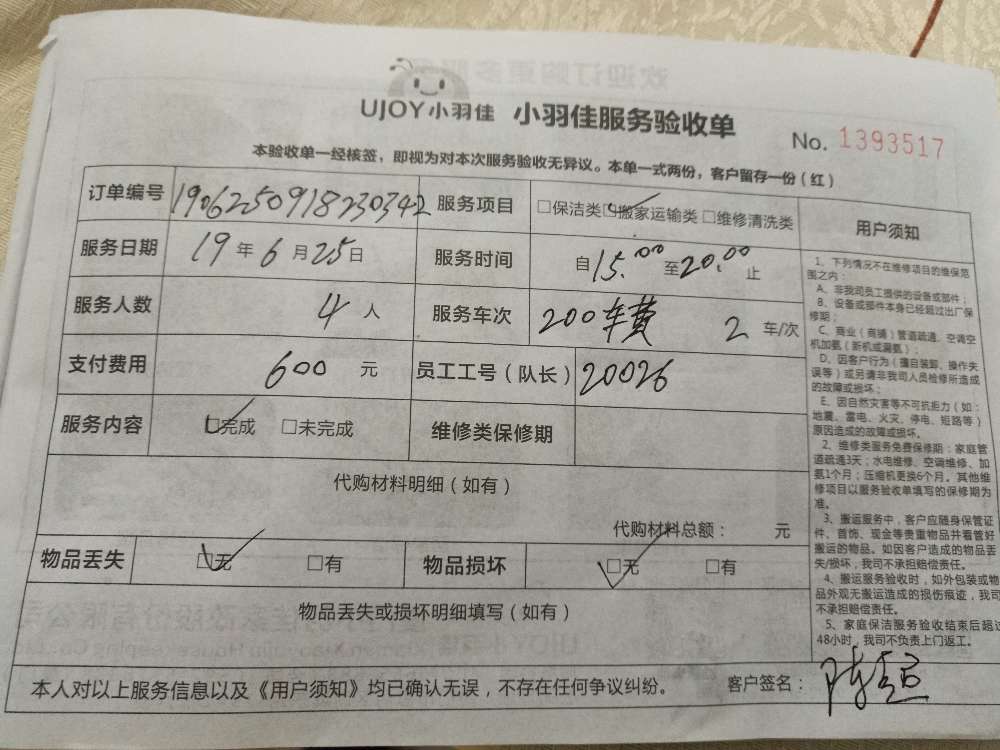 UJOY小羽佳 小羽佳服务验收单
No. 1393517
本验收单一经核签，即视为对本次服务验收无异议。本单一式两份，客户留存一份（红）
订单编号 1906250918230342 服务项目 □保洁类 ☑搬家运输类 □维修清洗类
服务日期 19年6月25日 服务时间 自15:00至20:00止
服务人数 4人 服务车次 200车费 2车/次
支付费用 600元 员工工号（队长） 20026
服务内容 ☑完成 □未完成 维修类保修期
代购材料明细（如有）
代购材料总额： 元
物品丢失 ☑无 □有 物品损坏 ☑无 □有
物品丢失或损坏明细填写（如有）
本人对以上服务信息以及《用户须知》均已确认无误，不存在任何争议纠纷。 客户签名：
用户须知
1、下列情况不在维修项目的维保范
围之内：
A、非我司员工提供的设备或部件；
B、设备或部件本身已经超过出厂保
修期；
C、商业（商铺）管道疏通、空调空
机加氨（新机或漏氨）；
D、因客户行为（擅自装卸、操作失
误等）或另请非我司人员检修所造成
的故障或损坏；
E、因自然灾害等不可抗拒力（如：
地震、雷电、火灾、停电、短路等）
原因造成的故障或损坏。
2、维修类服务免费保修期：家庭管
道疏通3天；水电维修、空调维修、加
氨1个月；压缩机更换6个月。其他维
修项目以服务验收单填写的保修期为
准。
3、搬运服务中，客户应随身保管证
件、首饰、现金等贵重物品并看管好
搬运的物品。如因客户造成的物品丢
失/损坏，我司不承担赔偿责任。
4、搬运服务验收时，如外包装或物
品外观无搬运造成的损伤痕迹，我司
不承担赔偿责任。
5、家庭保洁服务验收结束后超过
48小时，我司不负责上门返工。